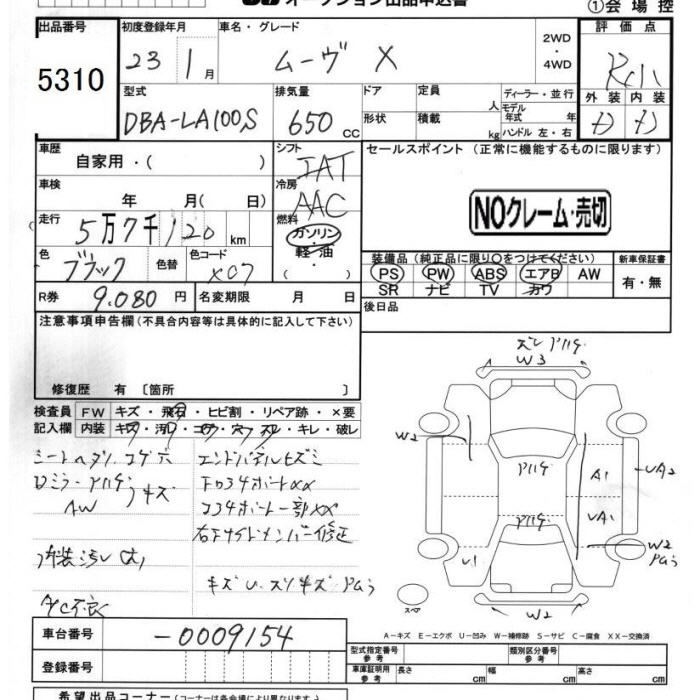 オークション出品申込書
①会場控
出品番号
5310
初度登録年月
23 1月
車名・グレード
ムーヴ X
2WD
・
4WD
評価点
外装 内装
型式
DBA-LA100S
排気量
650 cc
ドア
形状
定員
人
積載
kg
ディーラー・並行
モデル年式 年
ハンドル 左・右
車歴
自家用・( )
シフト
IAT
セールスポイント (正常に機能するものに限ります)
車検
年 月( 日)
冷房
AAC
NOクレーム・売切
走行
5万7千120 km
燃料
ガソリン
・
軽油
・
( )
色
ブラック
色替
色コード
X07
装備品 (純正品に限り○をつけてください)
PS PW ABS エアB AW
SR ナビ TV カワ
新車保証書
有・無
R券
9.080 円
名変期限 月 日
後日品
注意事項申告欄 (不具合内容等は具体的に記入して下さい)
修復歴 有 〔箇所 〕
検査員
記入欄
FW キズ・飛石・ヒビ割・リペア跡・×要
内装 キズ・汚レ・コゲ・穴・スレ・キレ・破レ
Dミラー
キズ
AW
内装汚レ 大
A/C不良
エンドパネルヒズミ
コ34ボート一部XX
右Fサイドメンバー修正
W3
W2
A1
UA2
UA1
W2
U1
W2
スペア
A-キズ E-エクボ U-凹み W-補修跡 S-サビ C-腐食 XX-交換済
車台番号
-0009154
登録番号
型式指定番号
参考
類別区分番号
参考
車庫証明用
参考
長さ cm
幅 cm
高さ cm
希望出品コーナー (コーナーは各会場により異なります)